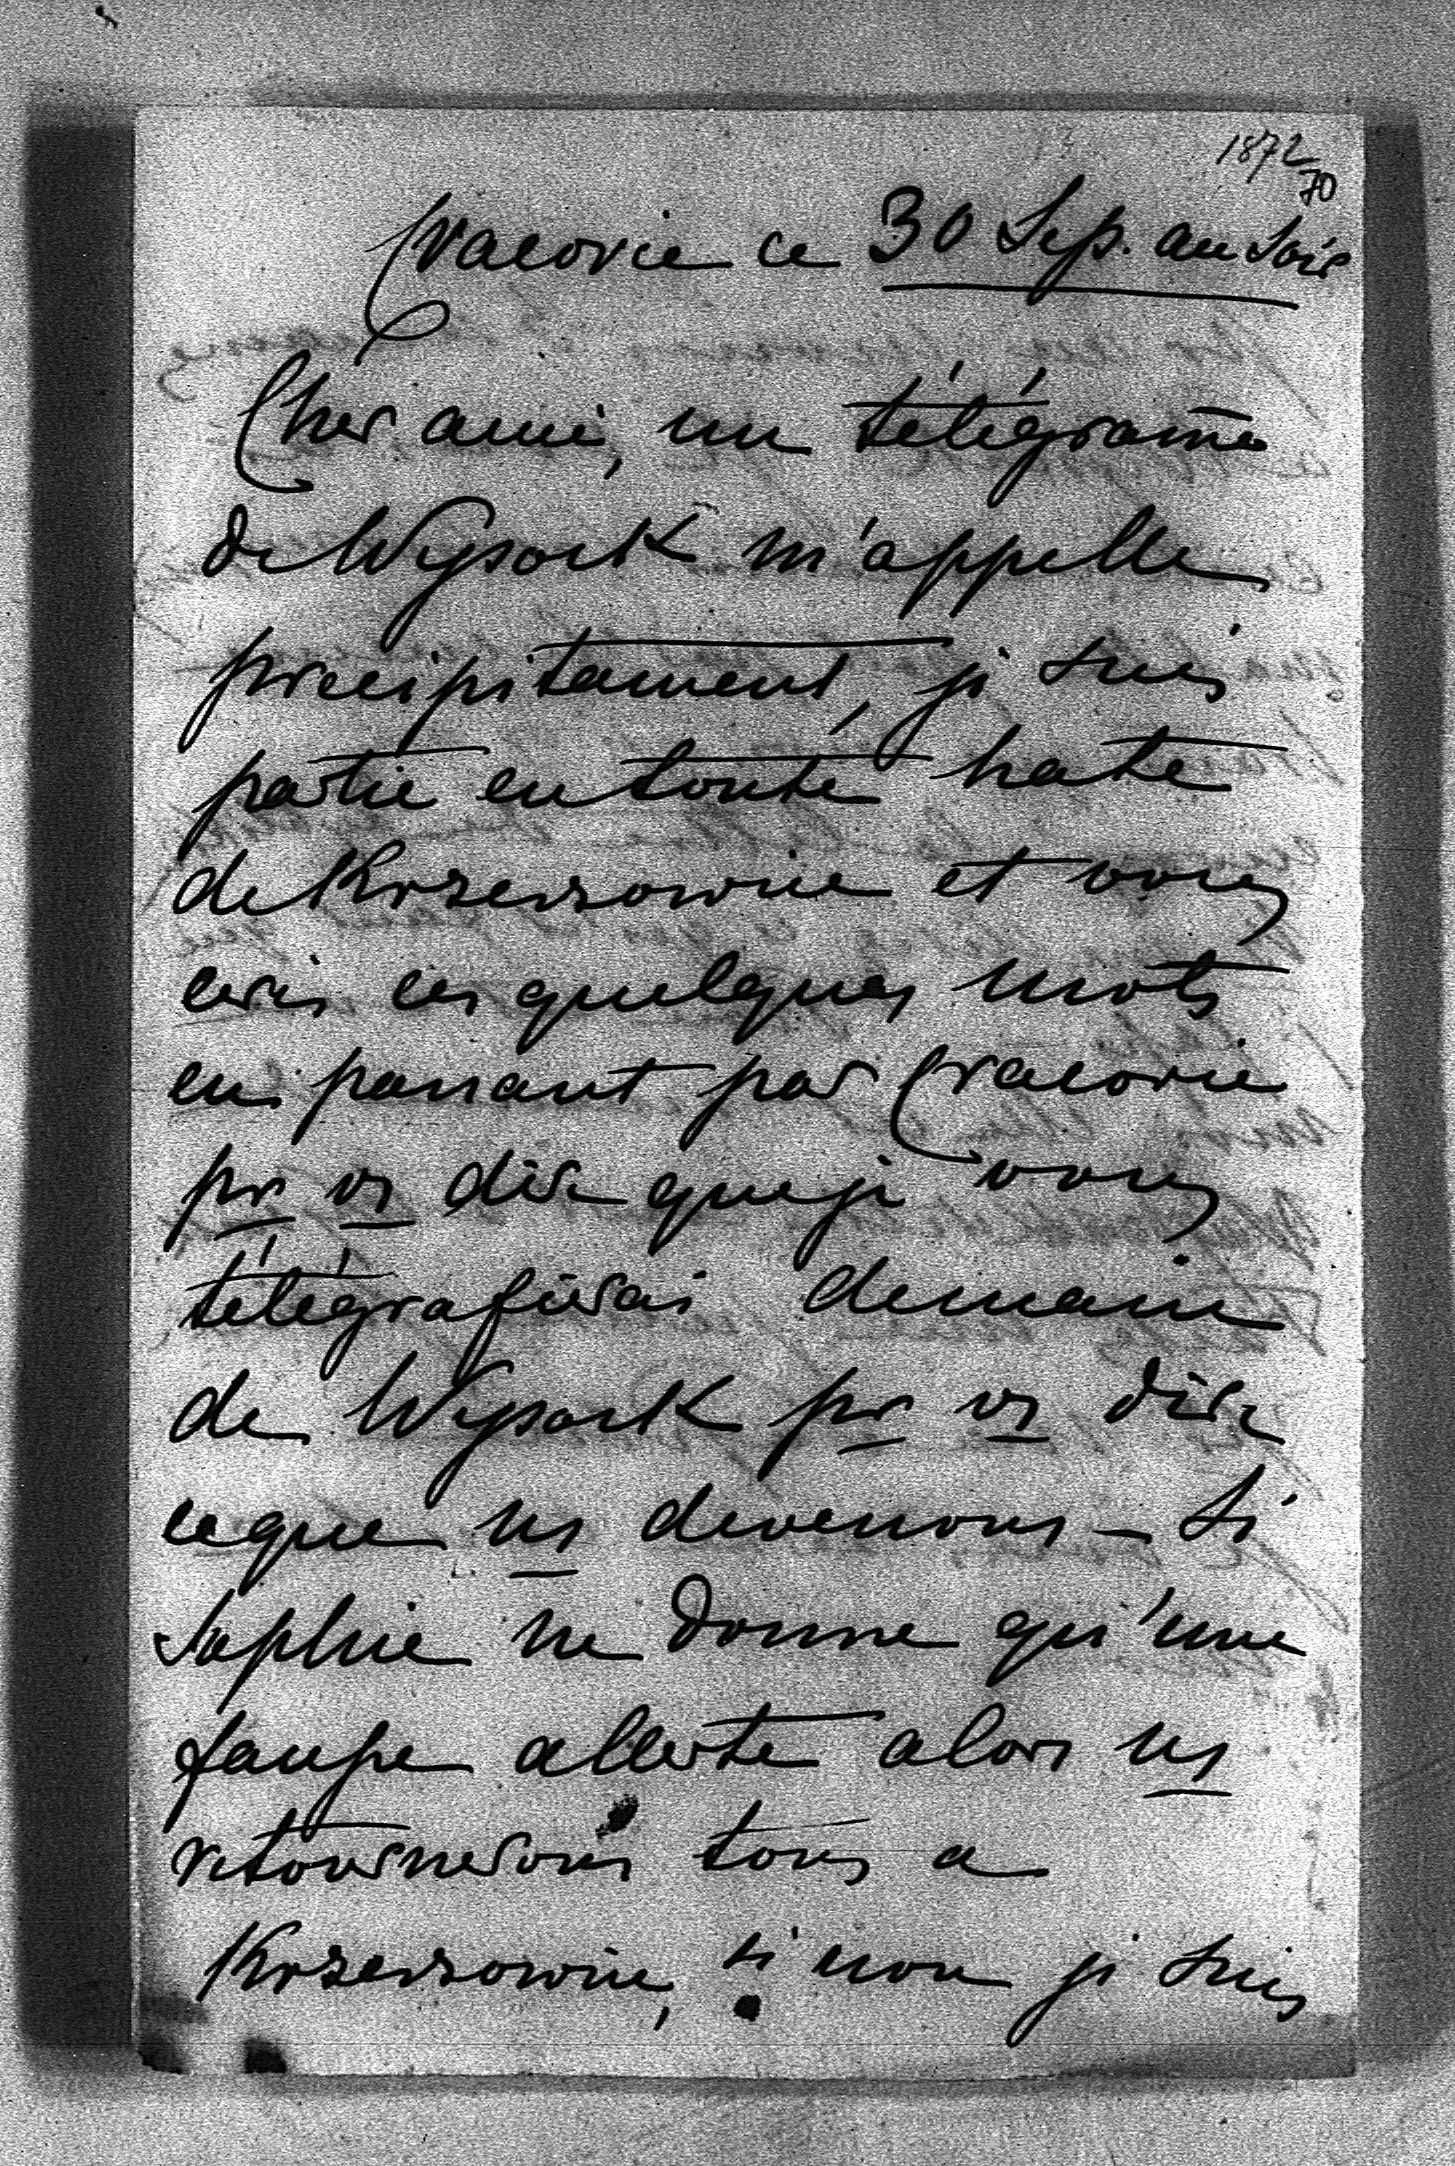 1872
70
Cracovie ce 30 Sep. au Soir
Cher ami, un télégrame
de Wysock m'appelle
precipitament, je suis
partie en toute hate
de Krzeszowice et vous
ecris ces quelques mots
en passant par Cracovie
pr vs dire que je vous
télégrafierai demain
de Wysock pr vs dire
ce que ns devenons – Si
Sophie ne donne qu'une
fausse allerte alors ns
retournerons tous a
Krzeszowice, si non je suis